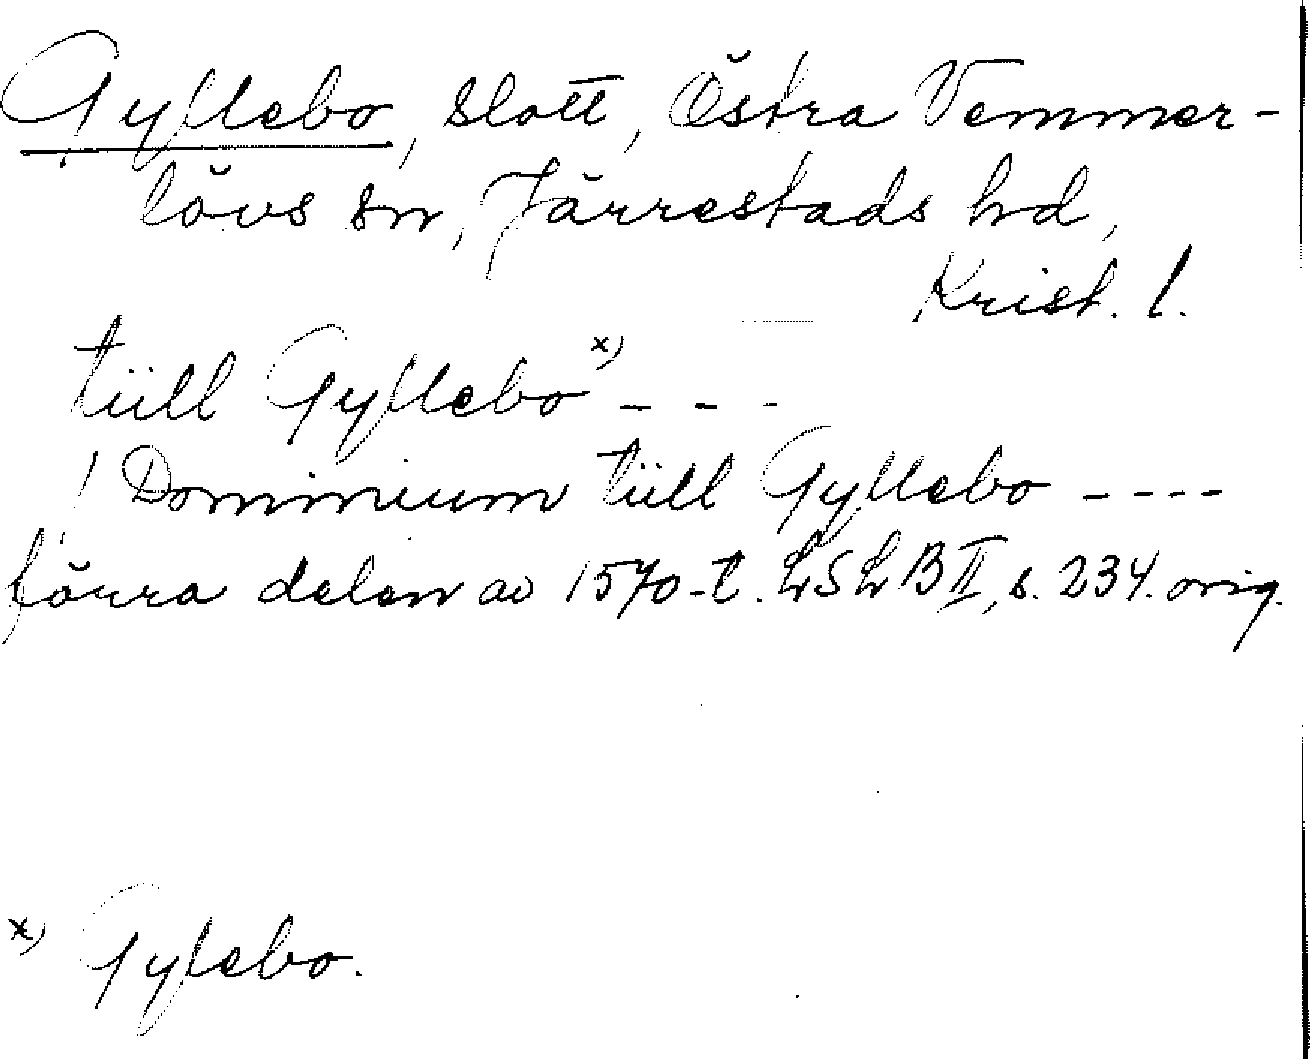 Gyllebo, slott, Östra Vemmer-
lövs sn, Järrestads hd,
Krist. l.
tüll Gyllebo x) - - -
/ Dominium tüll Gyllebo - - - -
förra delen av 1570-t. LSLB II, s. 234. orig.
x) Gylebo.